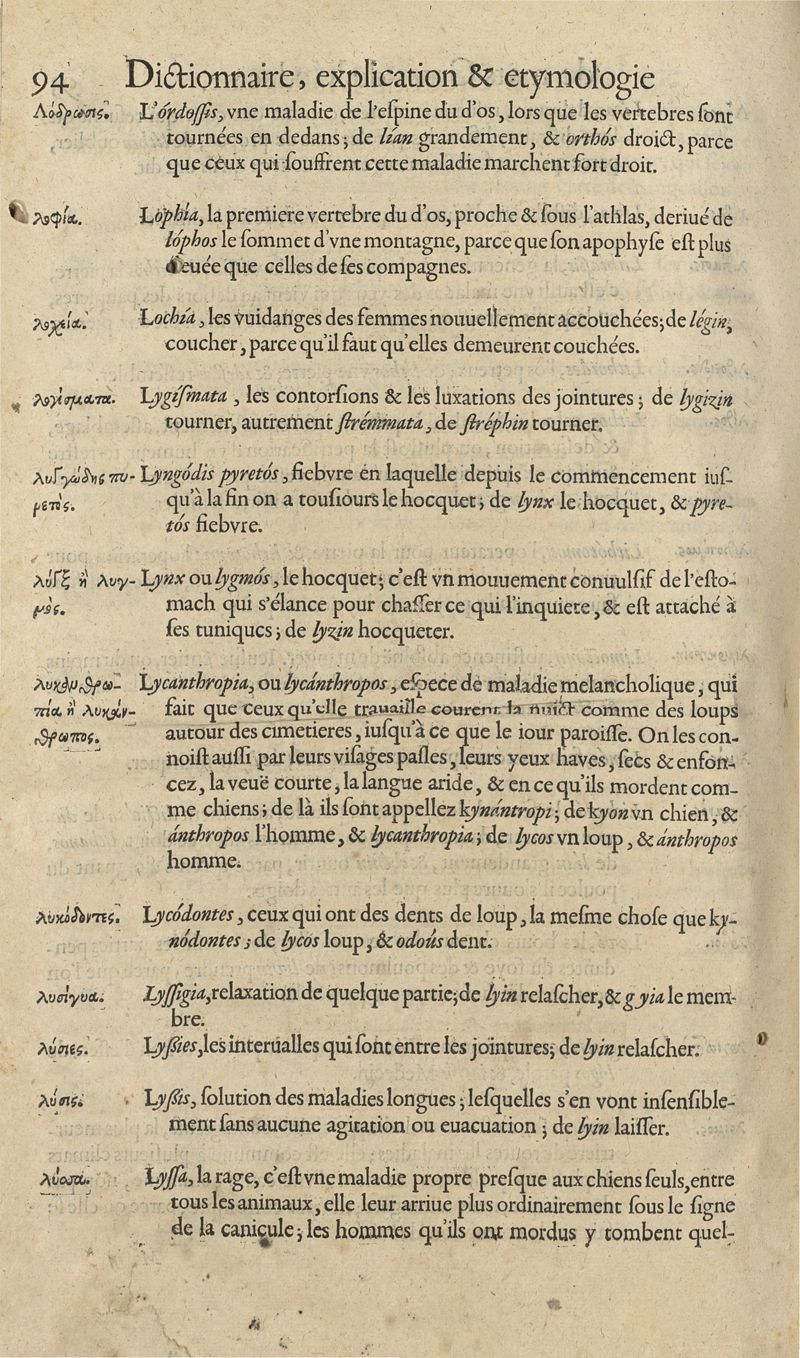 94 Dictionnaire, explication & etymologie
Λοδρωσις. L'órdoſſis, vne maladie de l'eſpine du d'os, lors que les vertebres ſont
tournées en dedans; de lían grandement, & orthós droict, parce
que ceux qui ſouffrent cette maladie marchent fort droit.
λοφία. Lophía, la premiere vertebre du d'os, proche & ſous l'athlas, deriué de
lóphos le ſommet d'vne montagne, parce que ſon apophyſe eſt plus
eleuée que celles de ſes compagnes.
λοχεία. Lochía, les vuidanges des femmes nouuellement accouchées; de légin,
coucher, parce qu'il faut qu'elles demeurent couchées.
λυγίσματα. Lygíſmata, les contorſions & les luxations des jointures; de lygizin
tourner, autrement ſtrémmata, de ſtréphin tourner.
λυγγώδης πυ- Lyngódis pyretós, fiebvre en laquelle depuis le commencement iuſ-
ρετὸς. qu'à la fin on a touſiours le hocquet; de lynx le hocquet, & pyre-
tós fiebvre.
λύγξ ἢ λυγ- Lynx ou lygmós, le hocquet; c'eſt vn mouuement conuulſif de l'eſto-
μὸς. mach qui s'élance pour chaſſer ce qui l'inquiete, & eſt attaché à
ſes tuniques; de lyzin hocqueter.
λυκανθρω- Lycanthropia, ou lycánthropos, eſpece de maladie melancholique, qui
πία ἢ λυκάν- fait que ceux qu'elle trauaille courent la nuict comme des loups
θρωπος. autour des cimetieres, iuſqu'à ce que le iour paroiſſe. On les con-
noiſt auſſi par leurs viſages paſles, leurs yeux haves, ſecs & enfon-
cez, la veuë courte, la langue aride, & en ce qu'ils mordent com-
me chiens; de là ils ſont appellez kynántropi; de kyon vn chien, &
ánthropos l'homme, & lycanthropia; de lycos vn loup, & ánthropos
homme.
λυκόδοντες. Lycódontes, ceux qui ont des dents de loup, la meſme choſe que ky-
nódontes; de lycos loup, & odoús dent.
λυσίγυα. Lyſſigia, relaxation de quelque partie; de lyin relaſcher, & gyia le mem-
bre.
λύσιες. Lyßies, les interualles qui ſont entre les jointures; de lyin relaſcher.
λύσις. Lyßis, ſolution des maladies longues; leſquelles s'en vont inſenſible-
ment ſans aucune agitation ou euacuation; de lyin laiſſer.
λύσσα. Lyſſa, la rage, c'eſt vne maladie propre preſque aux chiens ſeuls, entre
tous les animaux, elle leur arriue plus ordinairement ſous le ſigne
de la canicule; les hommes qu'ils ont mordus y tombent quel-